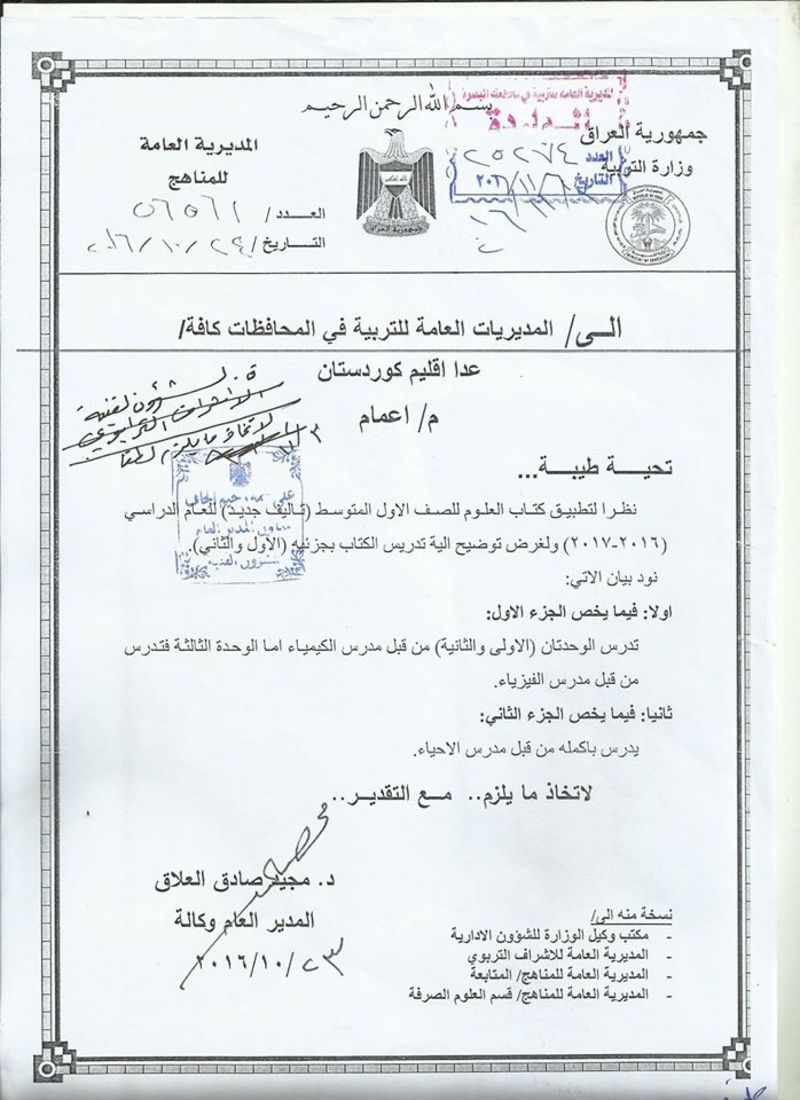 بسم الله الرحمن الرحيم
جمهورية العراق
وزارة التربية
المديرية العامة
للمناهج
العـــدد/ ٥٦٥٦١
التــاريخ/ ٢٠١٦/١٠/٢٤
المديرية العامة للتربية في محافظة البصرة
العدد ٢٥٢٧٤
التاريخ
جمهورية العراق
REPUBLIC OF IRAQ
MINISTRY OF EDUCATION
الــى/ المديريات العامة للتربية في المحافظات كافة/
عدا اقليم كوردستان
م/ اعمام
تحيـــة طيبـــة...
نظرا لتطبيق كتاب العلوم للصف الاول المتوسط (تاليف جديد) للعام الدراسي
(٢٠١٦-٢٠١٧) ولغرض توضيح الية تدريس الكتاب بجزئيه (الاول والثاني).
نود بيان الاتي:
اولا: فيما يخص الجزء الاول:
تدرس الوحدتان (الاولى والثانية) من قبل مدرس الكيمياء اما الوحدة الثالثة فتدرس
من قبل مدرس الفيزياء.
ثانيا: فيما يخص الجزء الثاني:
يدرس باكمله من قبل مدرس الاحياء.
لاتخاذ ما يلزم.. مــع التقديــر..
د. مجيد صادق العلاق
المدير العام وكالة
٢٠١٦/١٠/٢٣
نسخة منه الى/
- مكتب وكيل الوزارة للشؤون الادارية
- المديرية العامة للاشراف التربوي
- المديرية العامة للمناهج/ المتابعة
- المديرية العامة للمناهج/ قسم العلوم الصرفة